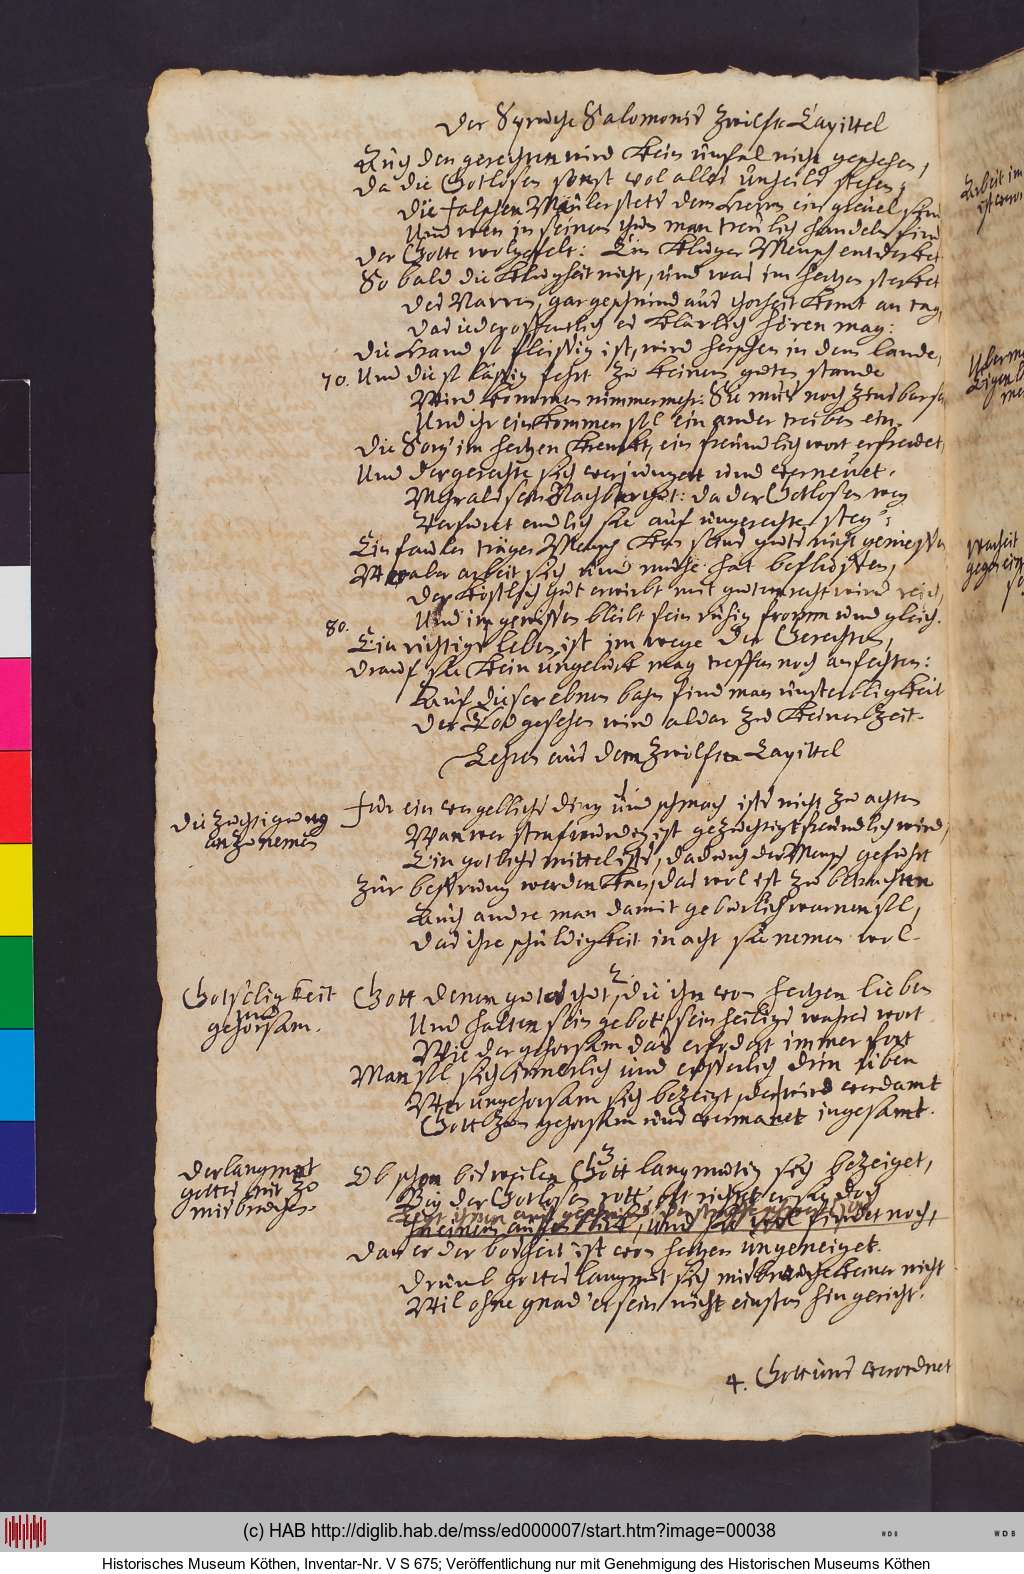 Der Sprüche Salomonis Zwölfte Capittel
Auch den gerechten wird kein unfal nicht geschehen,
Da die Gotlosen sonst vol alles unheils stehen;
Die falschen Mäuler stets dem Herren ein greuel sein
Und wen in seinem thun man treulich handelt fein
Der Gotte wolgefelt: Ein kluger Mensch entdecket
So bald die klugheit nicht, und was im hertzen stecket
Des Narren, gar geschwind aus thorheit komt an tag,
Das ieder offentlich es klärlich hören mag:
Die Hand so fleissig ist, wird herschen in dem lande,
70. Und die so lässig fehrt zu keinem guten stande
Wird kommen nimmermehr: Sie mus noch Zinsbar sein
Und ihr einkommen sol ein ander treiben ein.
Die Sorg' im hertzen krenckt, ein freundlich wort erfreuet,
Und der gerechte sich verjünget und verneuet.
Mehr als sein Nachbar thut: da der Gotlosen weg
Verfüret endlich sie auf ungerechte steg':
Ein fauler träger Mensch kan seins guts nicht geniessen
Wer aber arbeit sich und mühe hat beflissen,
Der köstlich gut erwirbt mit gutem recht wird reich,
Und im gewissen bleibt fein ruhig fromm und gleich.
80. Ein richtigs leben ist im wege der Gerechten,
Drauf sie kein ungelück mag treffen noch anfechten:
Auf dieser ebnen bahn find man unsterbligkeit
Der Tod gesehen wird aldar zu keiner Zeit.
Lehren aus dem Zwölften Capittel
Die Züchtigung
anzunemen
Für ein vergellichs ding und schmach ists nicht zu achten
Wan wer strafwürdig ist gezüchtigt freundlich wird,
Ein gotlichs mittel ists, dadurch der Mensch geführt
Zur bessrung werden kan, das wol ist zu betrachten
Auch andre man damit gebürlich warnen sol,
Das ihre schuldigkeit in acht sie nemen wol.
Gotseligkeit
und
gehorsam.
2.
Gott denen gutes thut, die ihn von hertzen lieben
Und halten sein gebot, sein heiligs wahres wort
Wie der gehorsam das erfodert immer fort
Man sol sich innerlich und eusserlich drin üben
Wer ungehorsam sich bezeigt, der wird verdamt
Gott zum gehorsam uns vermanet ingesamt.
Der langmut
gottes nit zu
misbrauchen.
3
Ob schon bisweilen Gott langmutig sich bezeiget,
Bey der Gotlosen rott,
und sie wol findet noch,
Dan er der bosheit ist von hertzen ungeneiget.
Drumb gottes langmut sich misbrauche keiner nicht
Wil ohne gnad' er sein nicht einsten hingericht.
4. Gott uns verordnet
(c) HAB http://diglib.hab.de/mss/ed000007/start.htm?image=00038
Historisches Museum Köthen, Inventar-Nr. V S 675; Veröffentlichung nur mit Genehmigung des Historischen Museums Köthen